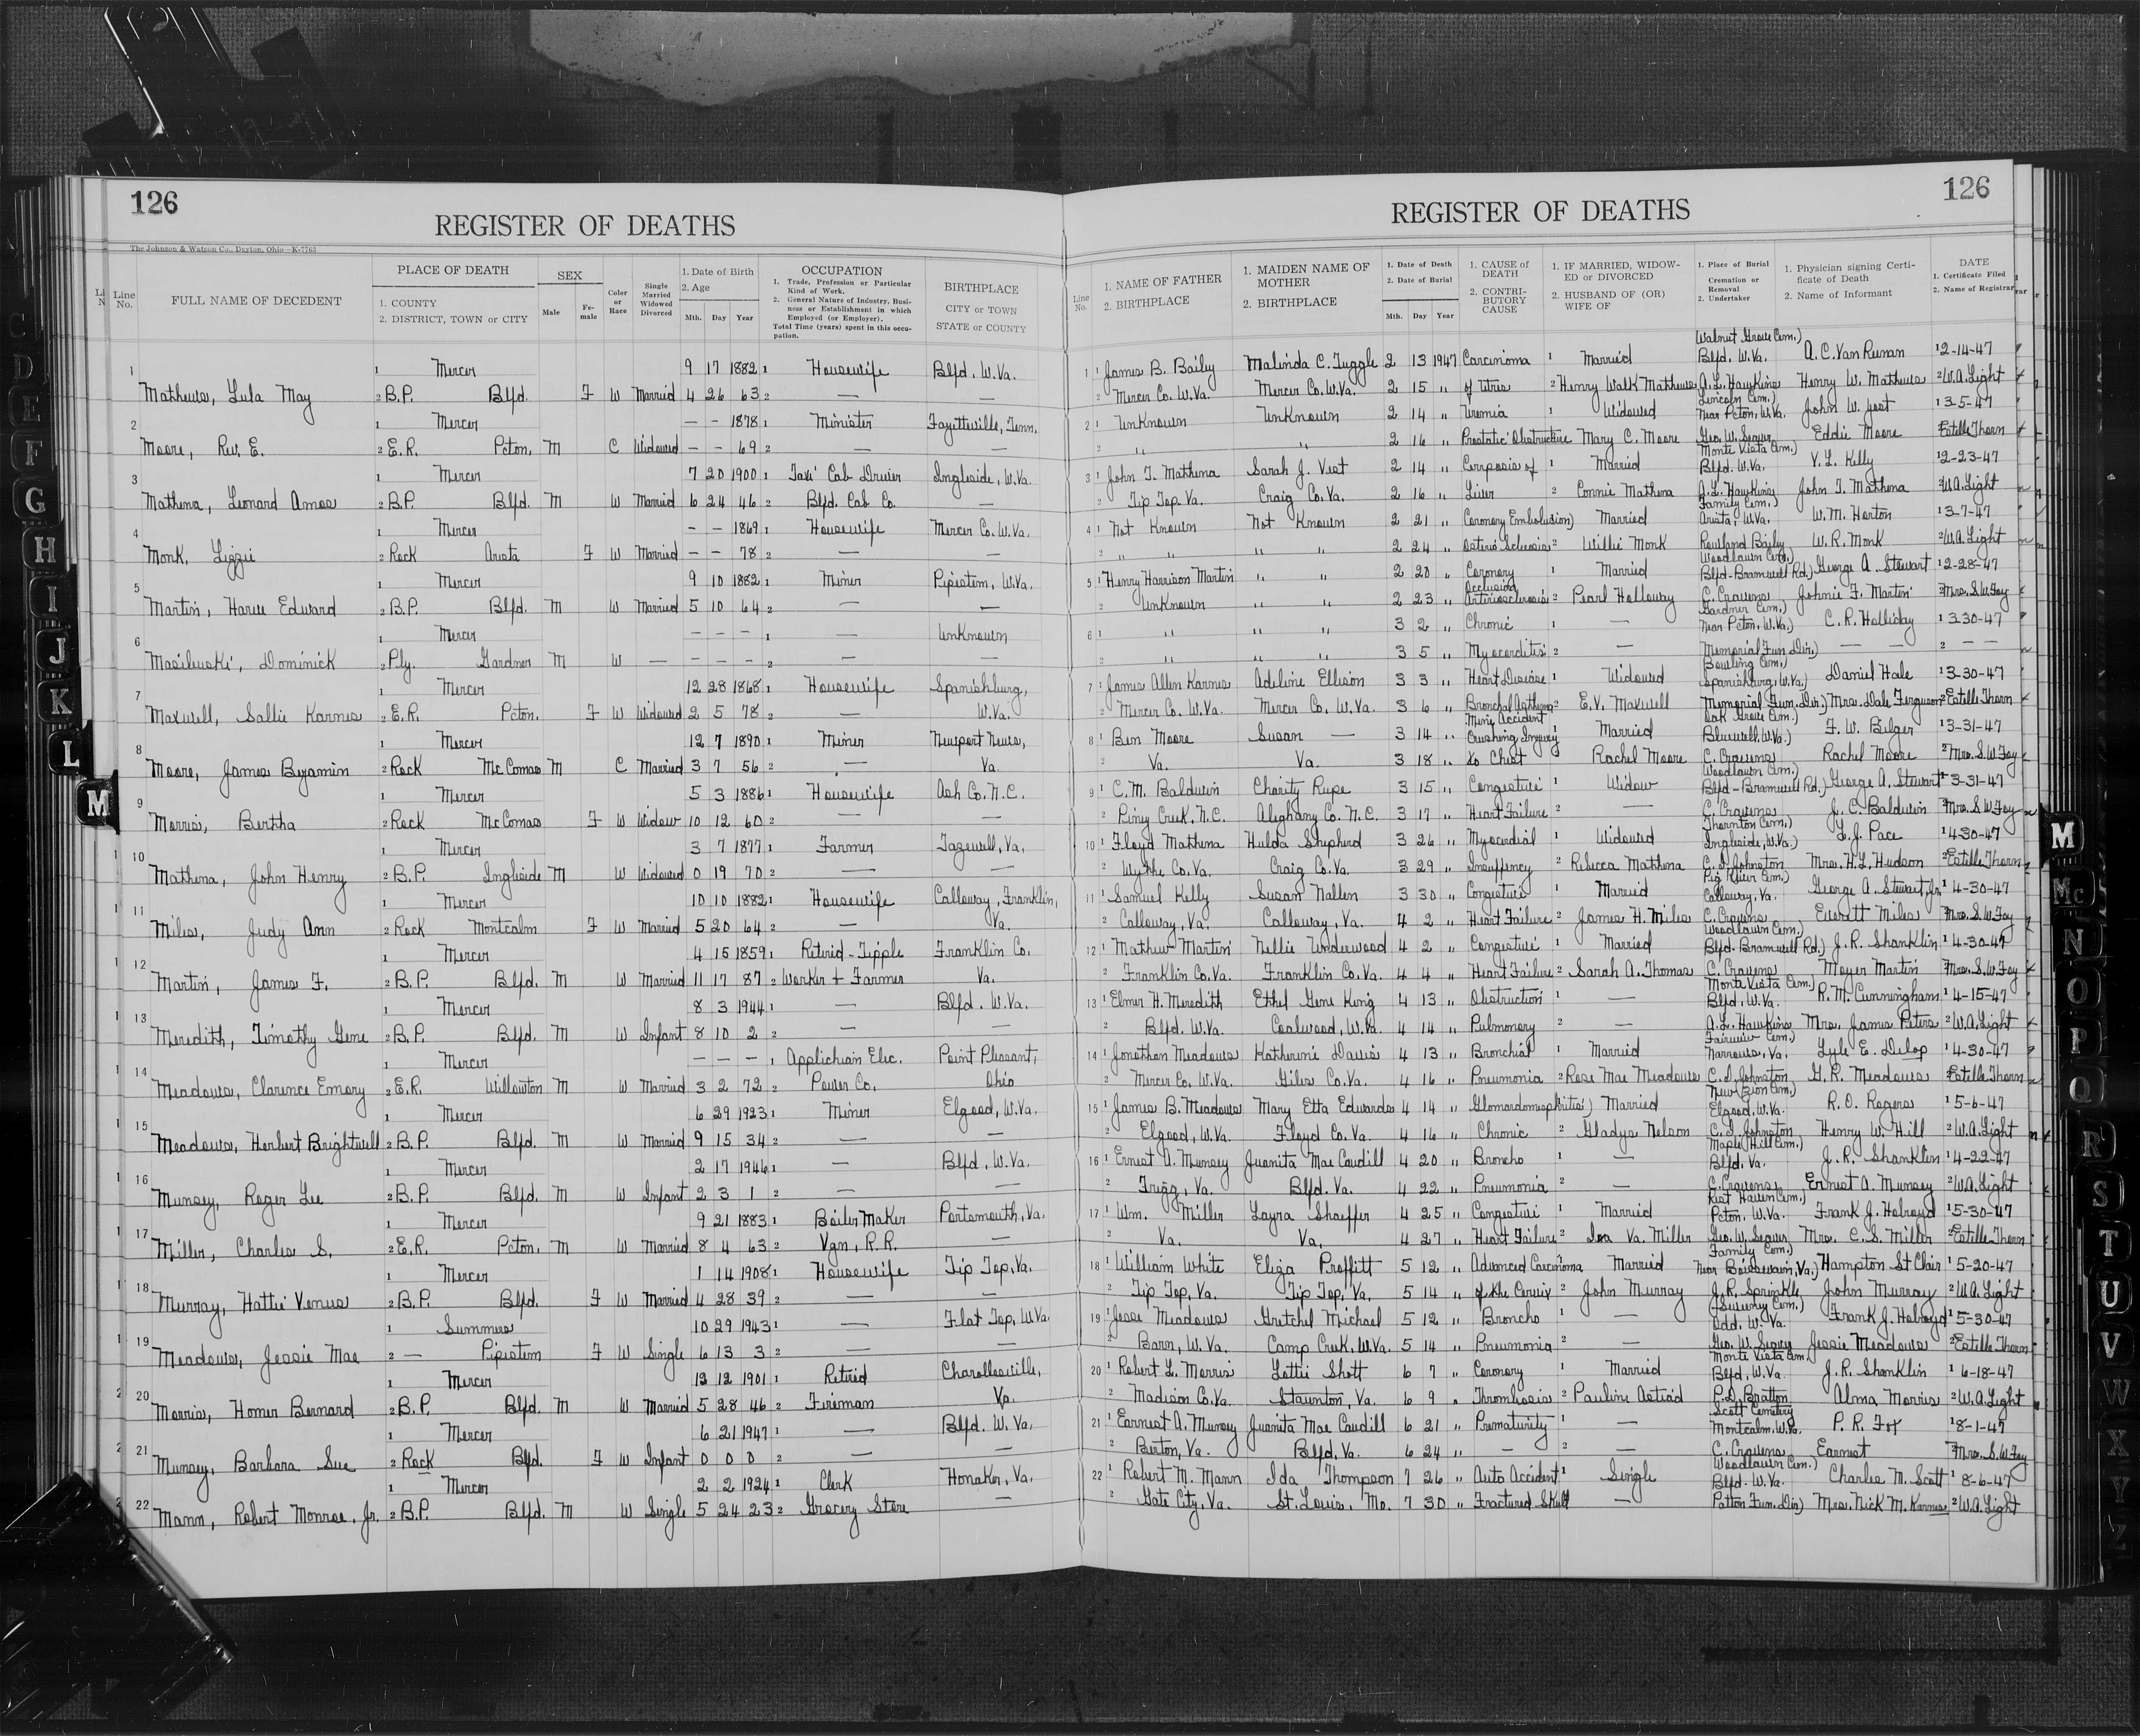 126
REGISTER OF DEATHS
The Johnson & Watson Co., Dayton, Ohio—K-7763
Line No.
FULL NAME OF DECEDENT
PLACE OF DEATH
1. COUNTY
2. DISTRICT, TOWN or CITY
SEX
Male
Female
Color or Race
Single Married Widowed Divorced
1. Date of Birth
2. Age
Mth. Day Year
OCCUPATION
1. Trade, Profession or Particular Kind of Work.
2. General Nature of Industry, Business or Establishment in which Employed (or Employer).
Total Time (years) spent in this occupation.
BIRTHPLACE
CITY or TOWN
STATE or COUNTY
1 1 Mercer 9 17 1882 1 Housewife Blfd. W.Va.
Mathews, Lula May 2 B.P. Blfd. F W Married 4 26 63 2 — —
2 1 Mercer — — 1878 1 Minister Fayetteville, Tenn.
Moore, Rev. E. 2 E.R. Pcton, M C Widowed — — 69 2 — —
3 1 Mercer 7 20 1900 1 Taxi Cab Driver Ingleside, W.Va.
Mathena, Leonard Amos 2 B.P. Blfd. M W Married 6 24 46 2 Blfd. Cab Co. —
4 1 Mercer — — 1869 1 Housewife Mercer Co. W.Va.
Monk, Lizzie 2 Rock Arista F W Married — — 78 2 — —
5 1 Mercer 9 10 1882 1 Miner Pipestem, W.Va.
Martin, Harve Edward 2 B.P. Blfd. M W Married 5 10 64 2 — —
6 1 Mercer — — — 1 — Unknown
Masilwski, Dominick 2 Ply. Gardner M W — — — — 2 — —
7 1 Mercer 12 28 1868 1 Housewife Spanishburg,
Maxwell, Sallie Karnes 2 E.R. Pcton. F W Widowed 2 5 78 2 — W.Va.
8 1 Mercer 12 7 1890 1 Miner Newport News,
Moore, James Byamin 2 Rock McComas M C Married 3 7 56 2 — Va.
9 1 Mercer 5 3 1886 1 Housewife Ash Co. N.C.
Morris, Bertha 2 Rock McComas F W Widow 10 12 60 2 — —
10 1 Mercer 3 7 1877 1 Farmer Tazewell, Va,
Mathena, John Henry 2 B.P. Ingleside M W Widowed 0 19 70 2 — —
11 1 Mercer 10 10 1882 1 Housewife Calloway, Franklin,
Miles, Judy Ann 2 Rock Montcalm F W Married 5 20 64 2 — Va.
12 1 Mercer 4 15 1859 1 Retired-Tipple Franklin Co.
Martin, James F. 2 B.P. Blfd. M W Married 11 17 87 2 Worker + Farmer Va.
13 1 Mercer 8 3 1944 1 — Blfd. W.Va.
Meredith, Timothy Gene 2 B.P. Blfd. M W Infant 8 10 2 2 — —
14 1 Mercer — — — 1 Applichian Elec. Point Pleasant,
Meadows, Clarence Emory 2 E.R. Willowton M W Married 3 2 72 2 Power Co. Ohio
15 1 Mercer 6 29 1923 1 Miner Elgood, W.Va.
Meadows, Herbert Brightwell 2 B.P. Blfd. M W Married 9 15 34 2 — —
16 1 Mercer 2 17 1946 1 — Blfd, W.Va.
Munsey, Roger Lee 2 B.P. Blfd. M W Infant 2 3 1 2 — —
17 1 Mercer 9 21 1883 1 Boiler Maker Portsmouth, Va.
Miller, Charles S. 2 E.R. Pcton, M W Married 8 4 63 2 Vgn. R.R. —
18 1 Mercer 1 14 1908 1 Housewife Tip Top, Va.
Murray, Hattie Venus 2 B.P. Blfd. F W Married 4 28 39 2 — —
19 1 Summers 10 29 1943 1 — Flat Top, W.Va.
Meadows, Jessie Mae 2 — Pipestem F W Single 6 13 3 2 — —
20 1 Mercer 12 12 1901 1 Retired Charollesville,
Morris, Homer Bernard 2 B.P. Blfd. M W Married 5 28 46 2 Fireman Va.
21 1 Mercer 6 21 1947 1 — Blfd. W. Va,
Munsey, Barbara Sue 2 Rock Blfd. F W Infant 0 0 0 2 — —
22 1 Mercer 2 2 1924 1 Clerk Honaker, Va.
Mann, Robert Monroe, Jr. 2 B.P. Blfd. M W Single 5 24 23 2 Grocery Store —
126
REGISTER OF DEATHS
Line No.
1. NAME OF FATHER
2. BIRTHPLACE
1. MAIDEN NAME OF MOTHER
2. BIRTHPLACE
1. Date of Death
2. Date of Burial
Mth. Day Year
1. CAUSE of DEATH
2. CONTRIBUTORY CAUSE
1. IF MARRIED, WIDOWED or DIVORCED
2. HUSBAND OF (OR) WIFE OF
1. Place of Burial Cremation or Removal
2. Undertaker
1. Physician signing Certificate of Death
2. Name of Informant
DATE
1. Certificate Filed
2. Name of Registrar
Walnut Grove Cem.)
1 1 James B. Baily Malinda C. Tuggle 2 13 1947 Carcinoma 1 Married Blfd. W.Va. A.C. Van Reenan 1 2-14-47
2 Mercer Co. W.Va. Mercer Co. W.Va. 2 15 " of Utris 2 Henry Walk Mathews A.L. Hawkins Henry W. Mathews 2 W.A. Light
Lincoln Cem.)
2 1 Unknown Unknown 2 14 " Uremia 1 Widowed Near Pcton, W.Va. John W. Yost 1 3-5-47
2 " " 2 16 " Prostatic Obstructive Mary C. Moore Geo. W. Seaver Eddie Moore 2 Estelle Thorn
Monte Vista Cem.)
3 1 John T. Mathena Sarah J. Vest 2 14 " Cerrposis of 1 Married Blfd. W.Va. V.L. Kelly 1 2-23-47
2 Tip Top. Va. Craig Co. Va. 2 16 " Liver 2 Connie Mathena A.L. Hawkins John T. Mathena 2 W.A. Light
Family Cem.)
4 1 Not Known Not Known 2 21 " Coronary Embolusion) Married Arista, W.Va. W.M. Horton 1 3-7-47
2 " " " " 2 24 " Osterio Sclerosis 2 Willie Monk Rowland Baily W.R. Monk 2 W.A. Light
Woodlawn Cem.)
5 1 Henry Harrison Martin " " 2 20 " Coronary 1 Married Blfd-Bramwell Rd.) George A. Stewart 1 2-28-47
Occlusion
2 Unknown " " 2 23 " Arteriosclerosis 2 Pearl Holloway C. Cravens Johnie F. Martin 2 Mrs. S.W. Foy
Gardner Cem.)
6 1 " " " 3 2 " Chronic 1 — Near Pcton, W.Va.) C.R. Holliday 1 3-30-47
2 " " " 3 5 " Myocorditis 2 — Memorial Fun. Dir.) — — 2 — —
Bowling Cem.)
7 1 James Allen Karnes Adeline Ellison 3 3 " Heart Disease 1 Widowed Spanishburg, W.Va.) Daniel Hale 1 3-30-47
2 Mercer Co. W.Va. Mercer Co. W.Va. 3 6 " Bronchal Asthma 2 E.V. Maxwell Memorial Fun. Dir.) Mrs. Dale Ferguson 2 Estelle Thorn
Mine Accident Oak Grove Cem.)
8 1 Ben Moore Susan — 3 14 " Crushing Injury Married Bluewell, W.Va.) F.W. Bilger 1 3-31-47
2 Va. Va. 3 18 " to Chest Rachel Moore C. Cravens Rachel Moore 2 Mrs. S.W. Foy
Woodlawn Cem.)
9 1 C.M. Baldwin Charity Rupe 3 15 " Congestive 1 Widow Blfd-Bramwell Rd.) George A. Stewart 1 3-31-47
2 Piney Creek, N.C. Aleghany Co. N.C. 3 17 " Heart Failure 2 — C. Cravens J.C. Baldwin 2 Mrs. S.W. Foy
Thornton Cem.)
10 1 Floyd Mathena Hulda Shepherd 3 26 " Myocardial 1 Widowed Ingleside, W.Va.) L.J. Pace 1 4-30-47
2 Wythe Co. Va. Craig Co. Va. 3 29 " Insuffency 2 Rebecca Mathena C.S. Johnston Mrs. H.L. Hudson 2 Estelle Thorn
Pig River Cem.)
11 1 Samuel Kelly Susan Nallen 3 30 " Congestive 1 Married Calloway, Va. George A. Stewart, Jr. 1 4-30-47
2 Calloway, Va. Calloway, Va. 4 2 " Heart Failure 2 James H. Miles C. Cravens Everett Miles 2 Mrs. S.W. Foy
Woodlawn Cem.)
12 1 Mathew Martin Nellie Underwood 4 2 " Congestive 1 Married Blfd. Bramwell Rd.) J.R. Shanklin 1 4-30-47
2 Franklin Co. Va. Franklin Co. Va. 4 4 " Heart Failure 2 Sarah A. Thomas C. Cravens Moyer Martin 2 Mrs. S.W. Foy
Monte Vista Cem.)
13 1 Elmer H. Meredith Ethel Gene King 4 13 " Obstruction 1 — Blfd, W.Va. R.M. Cunningham 1 4-15-47
2 Blfd. W.Va. Coalwood, W.Va. 4 14 " Pulmonary 2 — A.L. Hawkins Mrs. James Peters 2 W.A. Light
Fairview Cem.)
14 1 Jonathan Meadows Katherine Davis 4 13 " Bronchial 1 Married Narrows, Va. Lyle E. Delop 1 4-30-47
2 Mercer Co. W.Va. Giles Co. Va. 4 16 " Pneumonia 2 Rose Mae Meadows C.S. Johnston G.R. Meadows 2 Estelle Thorn
New Zion Cem.)
15 1 James B. Meadows Mary Etta Edwards 4 14 " Glomardomephritis) Married Elgood, W.Va. R.O. Rogers 1 5-6-47
2 Elgood, W.Va. Floyd Co. Va. 4 16 " Chronic 2 Gladys Nelson C.S. Johnston Henry W. Hill 2 W.A. Light
Maple Hill Cem.)
16 1 Ernest A. Munsey Juanita Mae Caudill 4 20 " Broncho 1 — Blfd, Va. J.R. Shanklin 1 4-22-47
2 Trigg, Va. Blfd. Va. 4 22 " Pneumonia 2 — C. Cravens Ernest A. Munsey 2 W.A. Light
Rest Haven Cem.)
17 1 Wm. Miller Layra Shaeffer 4 25 " Congestive 1 Married Pcton, W.Va. Frank J. Holroyd 1 5-30-47
2 Va. Va. 4 27 " Heart Failure 2 Iva Va. Miller Geo. W. Seaver Mrs. C.S. Miller 2 Estelle Thorn
Family Cem.)
18 1 William White Eliza Proffitt 5 12 " Advanced Carcinoma Married Near Boissevain, Va.) Hampton St Clair 1 5-20-47
2 Tip Top, Va. Tip Top, Va. 5 14 " of the Cervix 2 John Murray J.R. Sprinkle John Murray 2 W.A. Light
(Sweeney Cem.)
19 1 Jesse Meadows Gretchel Michael 5 12 " Broncho 1 — Odd, W.Va. Frank J. Holroyd 1 5-30-47
2 Barn, W.Va. Camp Creek, W.Va. 5 14 " Pneumonia 2 — Geo. W. Seaver Jessie Meadows 2 Estelle Thorn
Monte Vista Cem.
20 1 Robert L. Morris Lottie Shott 6 7 " Coronary 1 Married Blfd, W.Va. J.R. Shanklin 1 6-18-47
2 Madison Co. Va. Staunton, Va. 6 9 " Thrombosis 2 Pauline P.D. Bratton Alma Morris 2 W.A. Light
Scott Cemetery
21 1 Earnest A. Munsey Juanita Mae Caudill 6 21 " Prematurity 1 — Montcalm, W.Va. P.R. Fox 1 8-1-47
2 Berton, Va. Blfd, Va. 6 24 " — 2 — C. Cravens Earnest 2 Mrs. S.W. Foy
Woodlawn Cem.)
22 1 Robert M. Mann Ida Thompson 7 26 " Auto Accident 1 Single Blfd. W.Va. Charles M. Scott 1 8-6-47
2 Gate City, Va. St. Louis, Mo. 7 30 " Fractured Skull — Patton Fun. Dir) Mrs. Nick M. Karnes 2 W.A. Light
C D E F G H I J K L M
M Mc N O P Q R S T U V W X Y Z